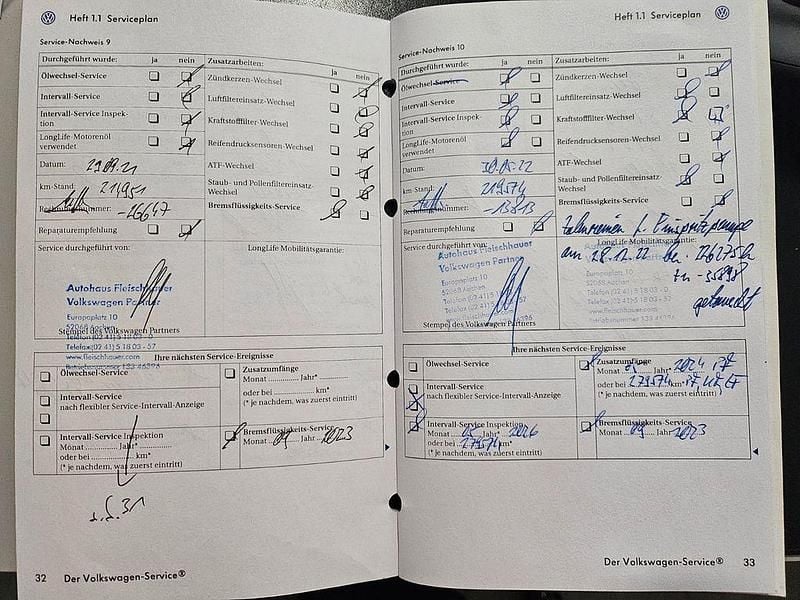 Heft 1.1 Serviceplan
Service-Nachweis 9
Durchgeführt wurde: ja nein
Ölwechsel-Service
Intervall-Service
Intervall-Service Inspek-
tion
LongLife-Motorenöl
verwendet
Datum: 29.09.21
km-Stand: 211951
Rechnungsnummer: -26647
Reparaturempfehlung
Zusatzarbeiten: ja nein
Zündkerzen-Wechsel
Luftfiltereinsatz-Wechsel
Kraftstofffilter-Wechsel
Reifendrucksensoren-Wechsel
ATF-Wechsel
Staub- und Pollenfiltereinsatz-
Wechsel
Bremsflüssigkeits-Service
Service durchgeführt von:
LongLife Mobilitätsgarantie:
Autohaus Fleischhauer
Volkswagen Partner
Europaplatz 10
52068 Aachen
Stempel des Volkswagen Partners
Telefon (02 41) 5 18 03 - 0
Telefax (02 41) 5 18 03 - 57
www.fleischhauer.com
Betriebsnummer 133 46396
Ihre nächsten Service-Ereignisse
Ölwechsel-Service
Intervall-Service
nach flexibler Service-Intervall-Anzeige
Intervall-Service Inspektion
Monat Jahr*
oder bei km*
(* je nachdem, was zuerst eintritt)
Zusatzumfänge
Monat Jahr*
oder bei km*
(* je nachdem, was zuerst eintritt)
Bremsflüssigkeits-Service
Monat 09 Jahr 2023
32 Der Volkswagen-Service®
Heft 1.1 Serviceplan
Service-Nachweis 10
Durchgeführt wurde: ja nein
Ölwechsel-Service
Intervall-Service
Intervall-Service Inspek-
tion
LongLife-Motorenöl
verwendet
Datum: 30.05.22
km-Stand: 219574
Rechnungsnummer: -13813
Reparaturempfehlung
Zusatzarbeiten: ja nein
Zündkerzen-Wechsel
Luftfiltereinsatz-Wechsel
Kraftstofffilter-Wechsel
Reifendrucksensoren-Wechsel
ATF-Wechsel
Staub- und Pollenfiltereinsatz-
Wechsel
Bremsflüssigkeits-Service
Zahnriemen f. Einspritzpumpe
am 28.12.22 bei 226275km
-35898
getauscht
Service durchgeführt von:
LongLife Mobilitätsgarantie:
Autohaus Fleischhauer
Volkswagen Partner
Europaplatz 10
52068 Aachen
Stempel des Volkswagen Partners
Ihre nächsten Service-Ereignisse
Ölwechsel-Service
Intervall-Service
nach flexibler Service-Intervall-Anzeige
Intervall-Service Inspektion
Monat 05 Jahr* 2026
oder bei 279574 km*
(* je nachdem, was zuerst eintritt)
Zusatzumfänge
Monat 05 Jahr* 2024
oder bei 279574 km*
(* je nachdem, was zuerst eintritt)
Bremsflüssigkeits-Service
Monat 09 Jahr 2023
Der Volkswagen-Service® 33